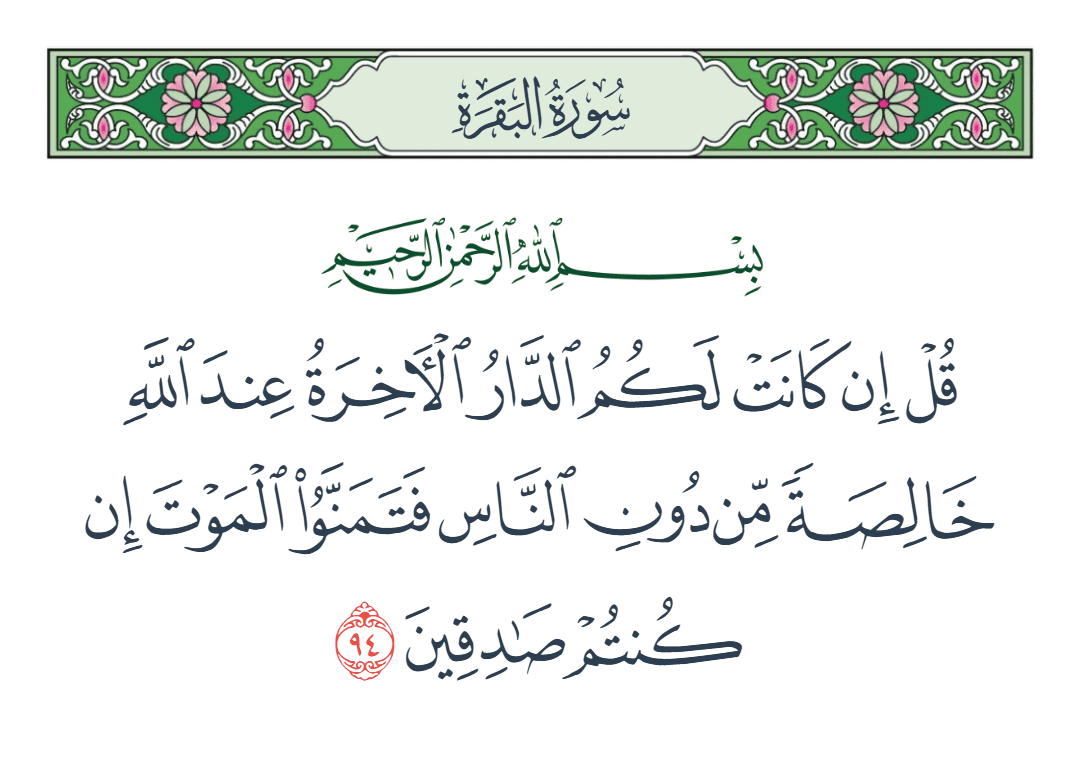 سُورَةُ البَقَرَةِ
بِسْمِ ٱللَّهِ ٱلرَّحْمَٰنِ ٱلرَّحِيمِ
قُلْ إِن كَانَتْ لَكُمُ ٱلدَّارُ ٱلْأَخِرَةُ عِندَ ٱللَّهِ
خَالِصَةً مِّن دُونِ ٱلنَّاسِ فَتَمَنَّوُا۟ ٱلْمَوْتَ إِن
كُنتُمْ صَٰدِقِينَ ٩٤